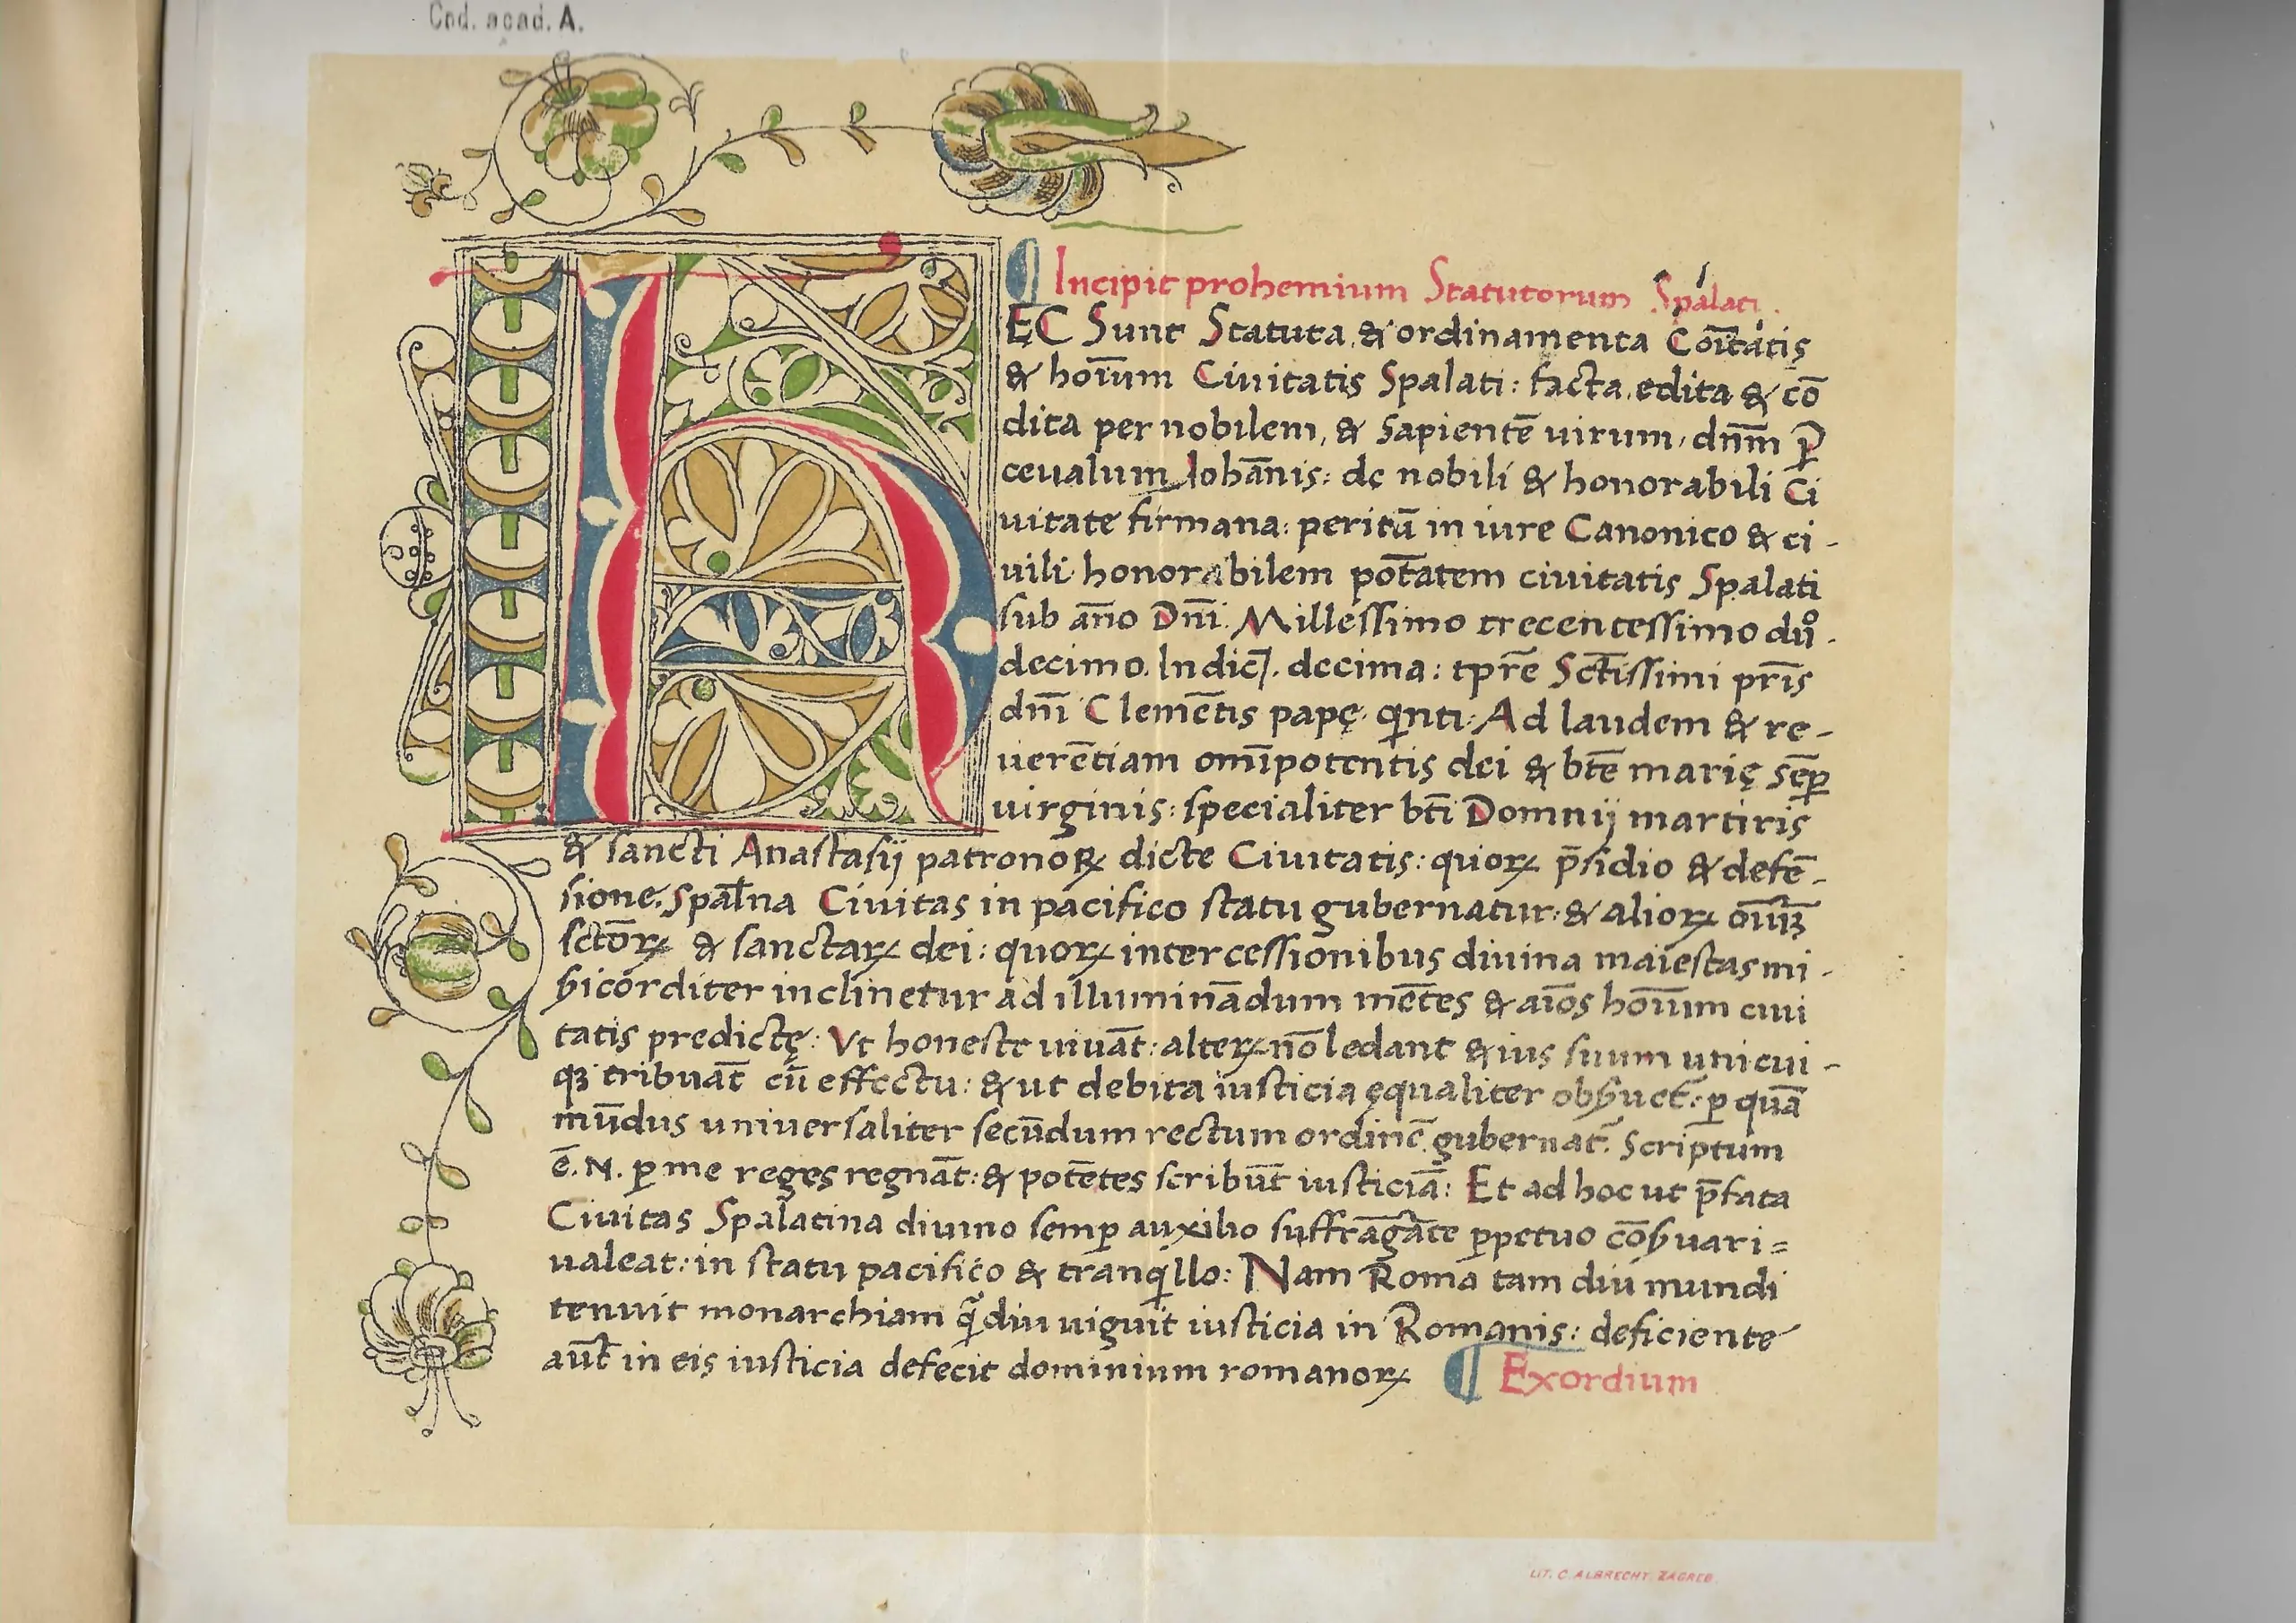 Cod. acad. A.
¶ Incipit prohemium Statutorum Spalati.
hEC Sunt Statuta & ordinamenta Coītatis
& hoīum Ciuitatis Spalati: facta, edita & cō
dita per nobilem, & sapientē uirum, dnm̄ ꝑ
ceualum Iohānis: de nobili & honorabili Ci
uitate firmana: peritū in iure Canonico & ci-
uili honorabilem pot̄atem ciuitatis Spalati
sub ān̄o Dn̄i. Millessimo trecentessimo duº-
decimo. Indic̄. decima: tpr̄e Sct̄issimi pr̄is
dn̄i Clemētis papę qinti: Ad laudem & re-
uerētiam om̄ipotentis dei & bt̄e marię sēꝑ
uirginis: specialiter bt̄i Domnij martiris
& sancti Anastasij patronoꝝ dicte Ciuitatis: quoꝝ p̄sidio & defē-
sione, Spal̄na Ciuitas in pacifico statu gubernatur: & alioꝝ
sctōꝝ & sanctaꝝ dei: quoꝝ intercessionibus diuina maiestas mi-
ẜicorditer inclinetur ad illuminādum mētes & aīos hoīum ciui
tatis predictę: Vt honeste uiuāt: alteꝝ nō ledant & ius suum unicui-
qꝫ tribuāt cū effectu: & ut debita iusticia ęqualiter obẜuet̄: ꝑ quā
mūdus uniuersaliter secūdum rectum ordinē gubernat̄. Scriptum
ē. N. ꝑ me reges regnāt: & potētes scribūt iusticiā: Et ad hoc ut p̄fata
Ciuitas Spalatina diuino semꝑ auxilio suffrāgāte ꝑpetuo cōẜuari=
ualeat: in statu pacifico & tranqillo: Nam Roma tam diu mundi
tenuit monarchiam qdiu uiguit iusticia in Romanis: deficiente
aut̄ in eis iusticia defecit dominium romanoꝝ ¶ Exordium
LIT. C. ALBRECHT ZAGREB